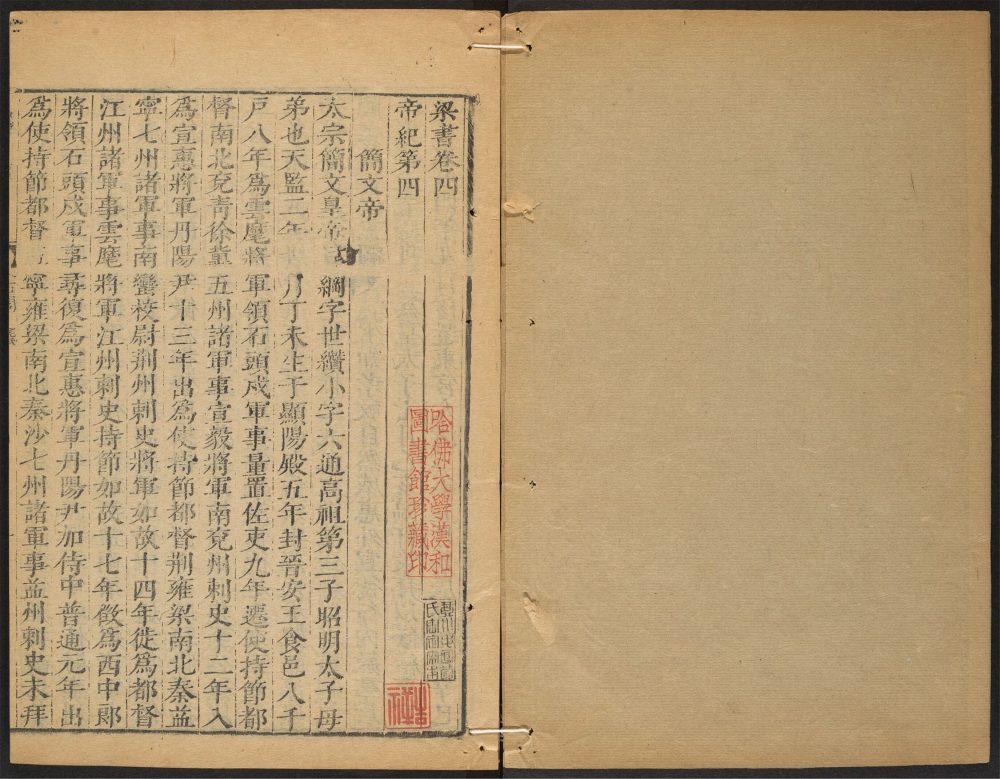 梁書卷四
帝紀第四
簡文帝
太宗簡文皇帝諱綱字世纘小字六通高祖第三子昭明太子母
弟也天監二年 月丁未生于顯陽殿五年封晉安王食邑八千
戶八年爲雲麾將軍領石頭戍軍事量置佐吏九年遷使持節都
督南北兗青徐冀五州諸軍事宣毅將軍南兗州刺史十二年入
爲宣惠將軍丹陽尹十三年出爲使持節都督荆雍梁南北秦益
寧七州諸軍事南蠻校尉荆州刺史將軍如故十四年徙爲都督
江州諸軍事雲麾將軍江州刺史持節如故十七年徵爲西中郎
將領石頭戍軍事尋復爲宣惠將軍丹陽尹加侍中普通元年出
爲使持節都督 寧雍梁南北秦沙七州諸軍事益州刺史未拜
哈佛大學漢和
圖書館珍藏印